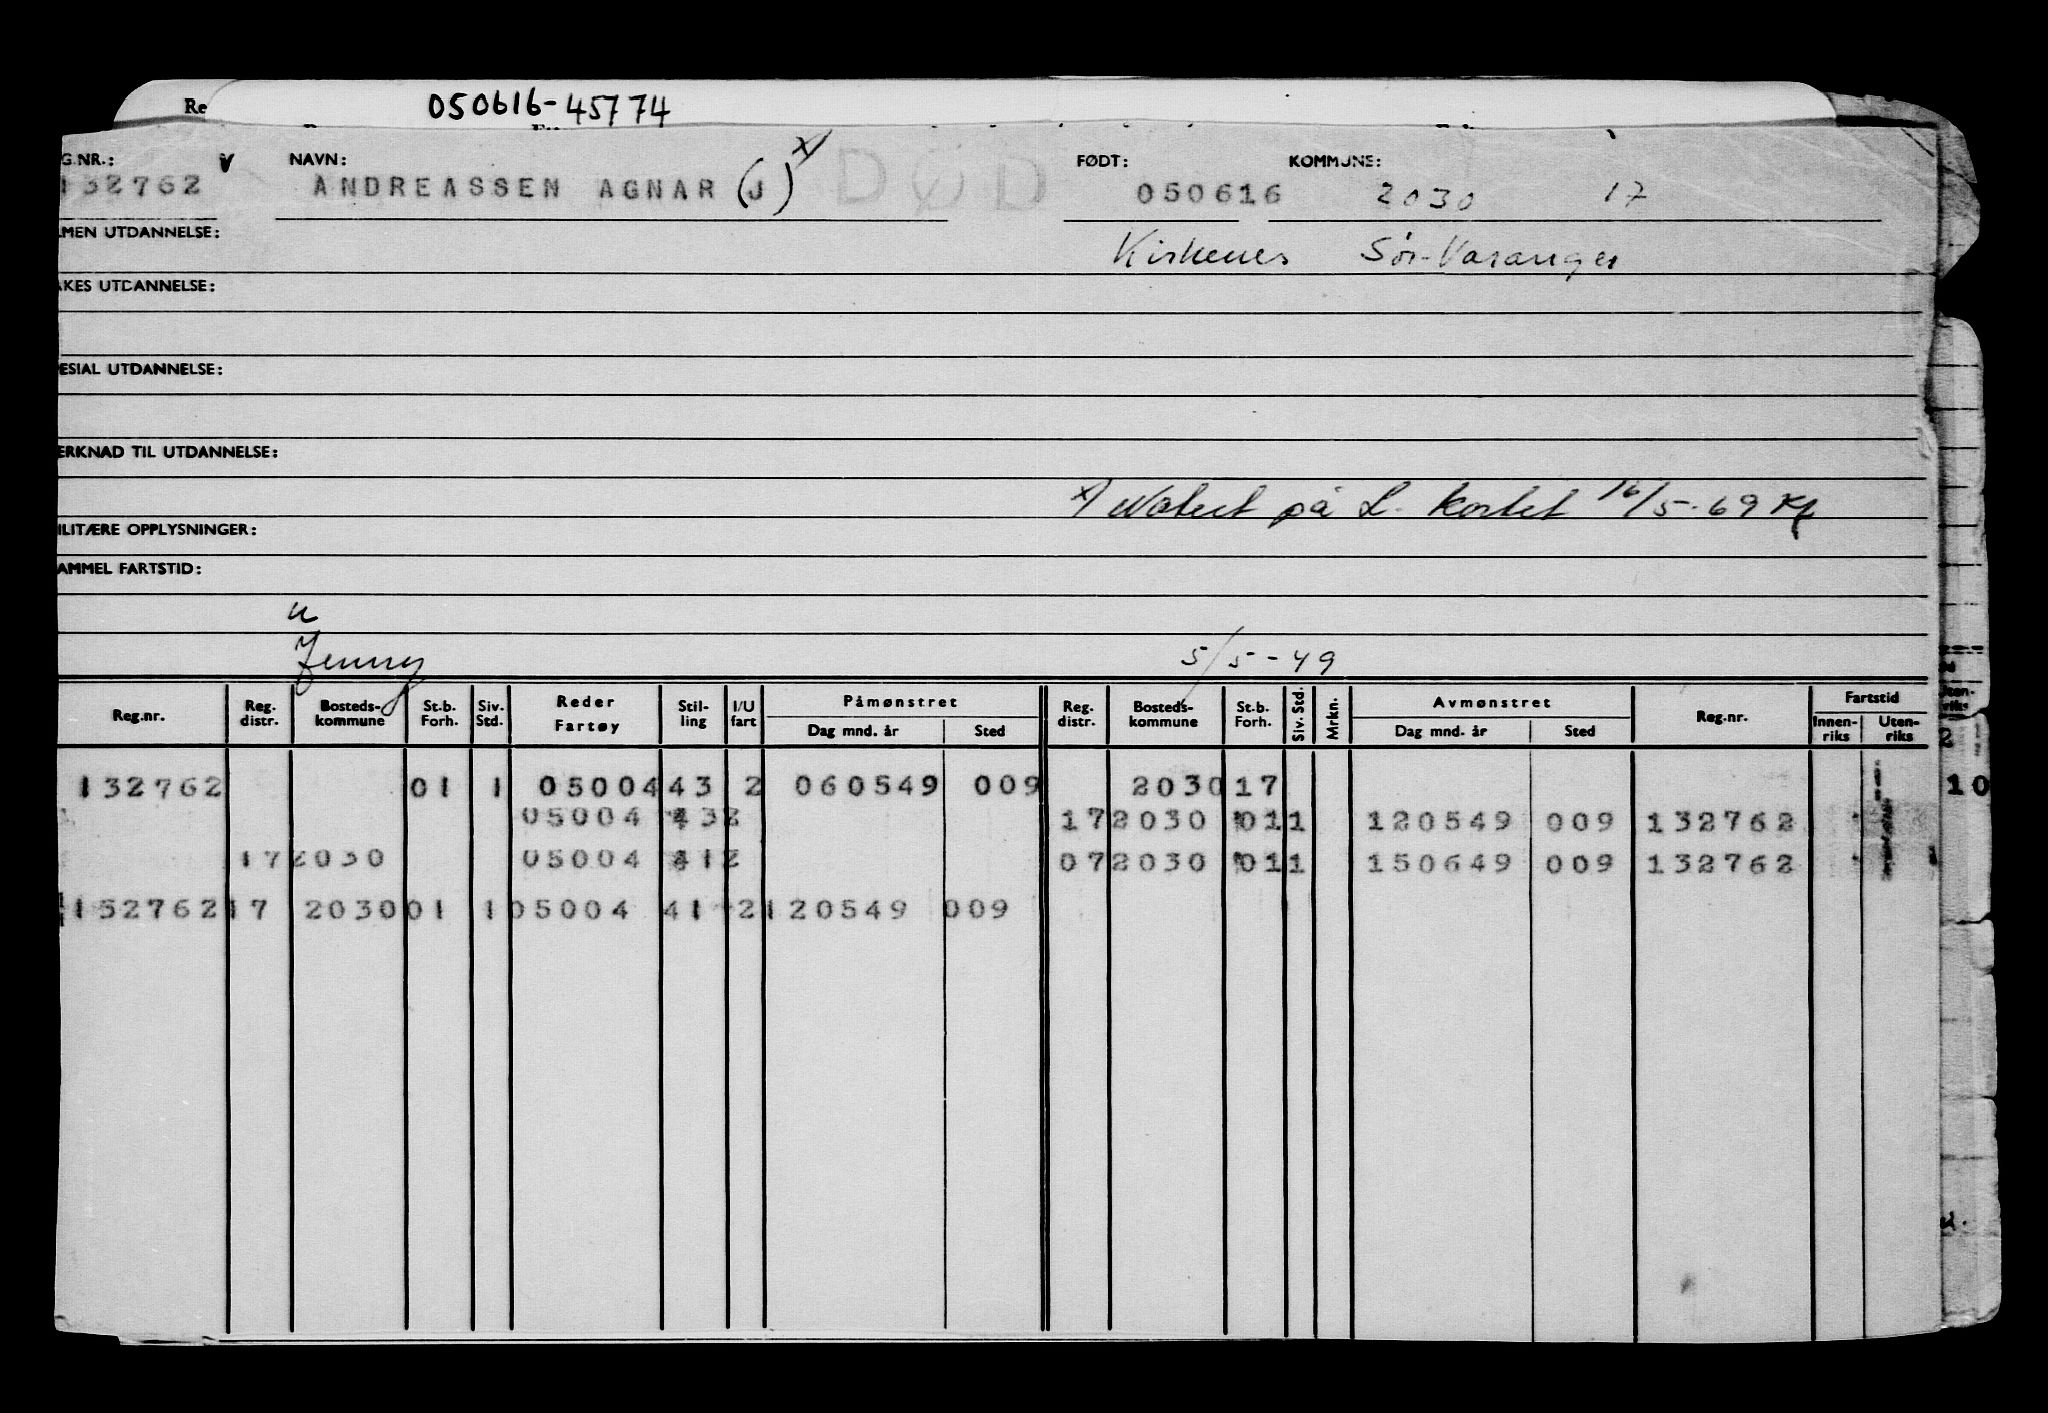 Re 050616-45774
G.NR.: v NAVN: x/ DØD FØDT: KOMMUNE:
132762 ANDREASSEN AGNAR (J) 050616 2030 17
LMEN UTDANNELSE: Kirkenes Sør-Varanger
AKES UTDANNELSE:
ESIAL UTDANNELSE:
ERKNAD TIL UTDANNELSE:
x/ Notert på L. kortet 16/5-69 Kf
ILITÆRE OPPLYSNINGER:
AMMEL FARTSTID:
u
Jenny 5/5-49
Reg.nr. Reg. distr. Bosteds-kommune St.b. Forh. Siv. Std. Reder Fartøy Stil-ling I/U fart Påmønstret Dag mnd. år Sted Reg. distr. Bosteds-kommune St.b. Forh. Siv. Std. Mrkn. Avmønstret Dag mnd. år Sted Reg.nr. Fartstid Innen-riks Uten-riks
132762 01 1 05004 43 2 060549 009 2030 17 10
05004 432 17 2030 011 120549 009 132762
17 2030 05004 412 07 2030 011 150649 009 132762
132762 17 2030 01 1 05004 41 2 120549 009